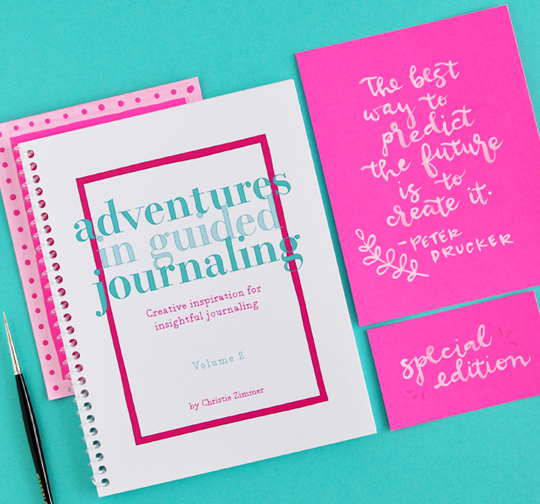 adventures
in guided
journaling
Creative inspiration for
insightful journaling
Volume 2
by Christie Zimmer
The best
way to
predict
the future
is to
create it.
-PETER
DRUCKER
special
edition